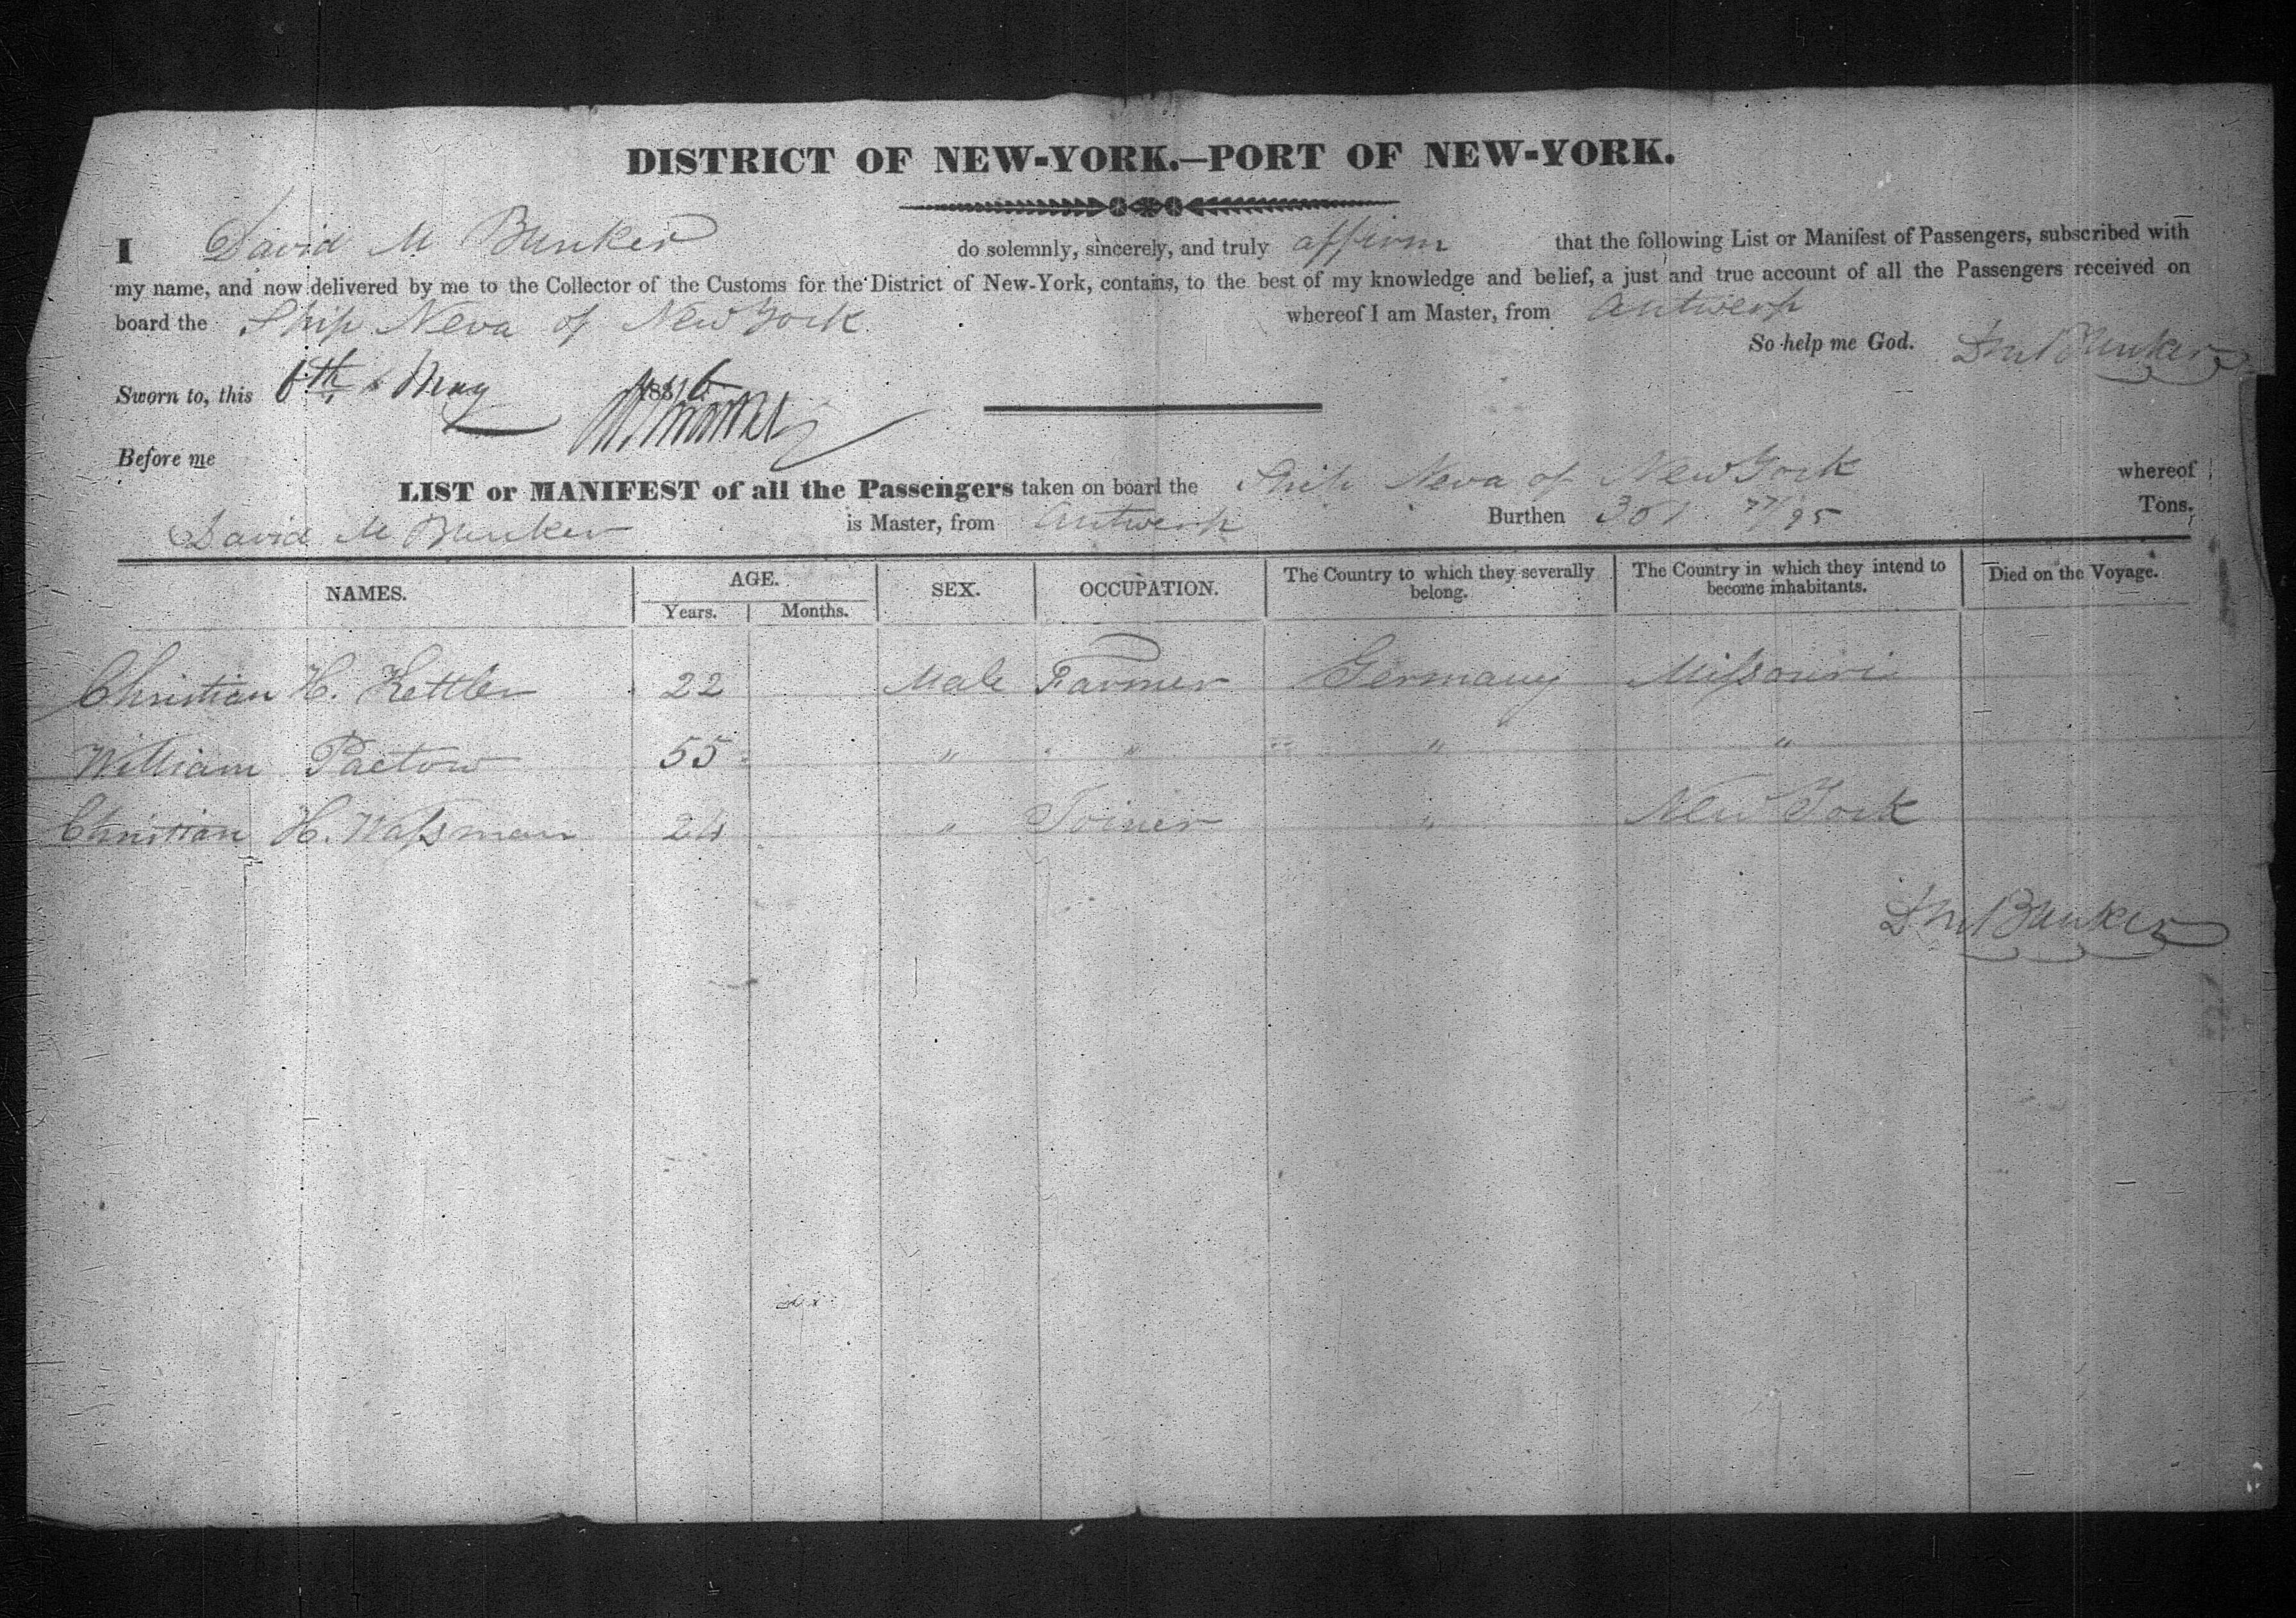 DISTRICT OF NEW-YORK.—PORT OF NEW-YORK.
I David M Bunker do solemnly, sincerely, and truly affirm that the following List or Manifest of Passengers, subscribed with
my name, and now delivered by me to the Collector of the Customs for the District of New-York, contains, to the best of my knowledge and belief, a just and true account of all the Passengers received on
board the Ship Neva of New York whereof I am Master, from Antwerp
So help me God. D M Bunker
Sworn to, this 6th May 1836
Before me
LIST or MANIFEST of all the Passengers taken on board the Ship Neva of New York whereof
David M Bunker is Master, from Antwerp Burthen 361 77/95 Tons.
NAMES. AGE. SEX. OCCUPATION. The Country to which they severally belong. The Country in which they intend to become inhabitants. Died on the Voyage.
Years. Months.
Christian H. Kettler 22 Male Farmer Germany Missouri
William Paetow 55 " " " "
Christian H. Wassman 24 " Joiner " New York
D M Bunker